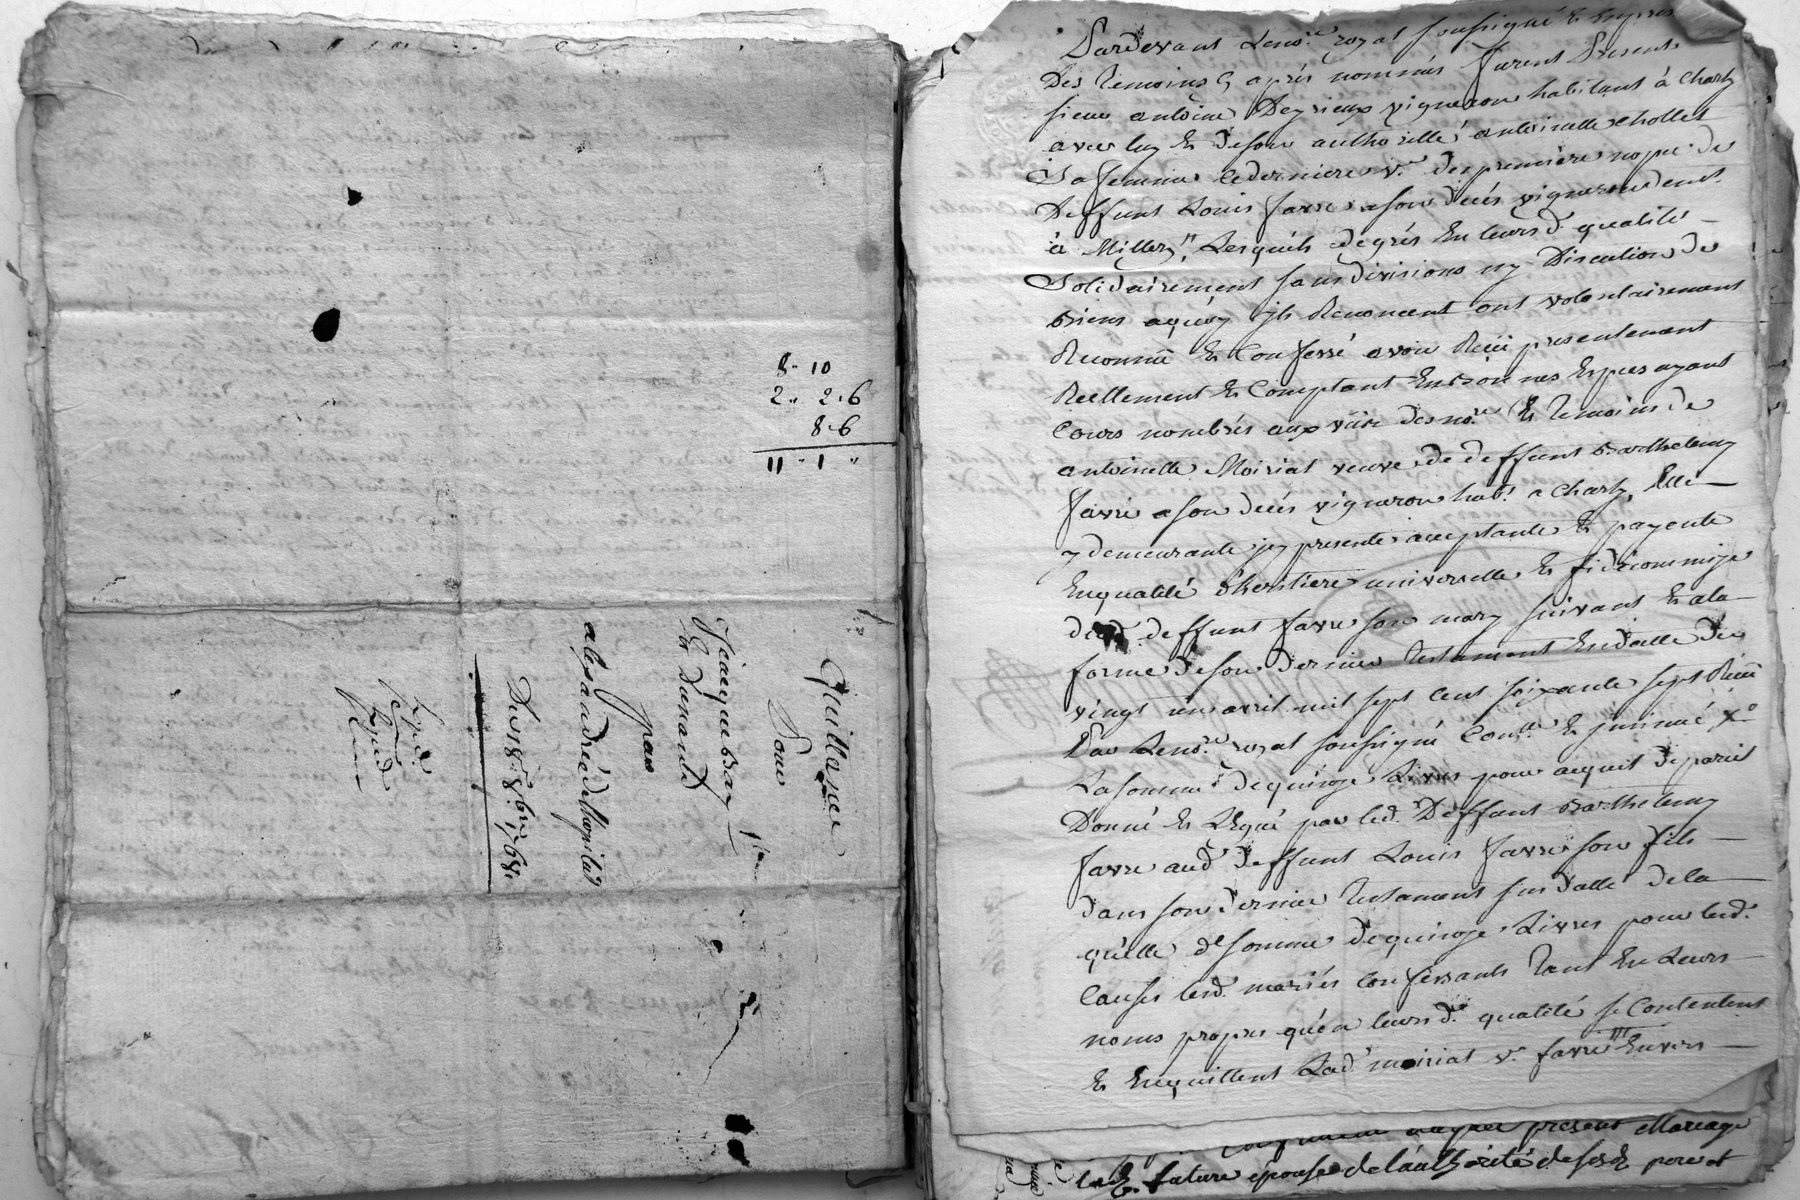 8 - 10
2 .. 2 . 6
8 . 6
11 - 1 "
Quittance
Pour
Jeacques bory
et Dunand
par
alexandre delhopital
Du 18e 8bre 1768.
Expd.
Expd
Pardevant Leno.re royal soussigné Et En presence
Des Temoins cy après nommés furent Presents
sieur antoine Deyrieux vigneron habitant à Charly
avec luy Et de son authoritté antoinette chollet
Sa femme cederniere v.e de premiere nopce de
Deffunt Louis favre a son décés vigneron demt.
à Millery, Lesquels de grés En leurs d. qualités
Solidairement sans division ny Discution de
Biens aquoy ils Renoncent ont volontairement
Reconnü Et Confessé avoir Reçü presentement
Reellement Et Comptant En bonnes Espèces ayant
Cours nombrés aux vües des no.re Et Temoins de
antoinette Moiriat veuve de deffunt Barthelemy
favre a son décés vigneron hab.t a Charly, Elle
y demeurante icy presente acceptante Et payante
En qualité d'heritiere universelle Et fideicommise
dud. deffunt favre son mary suivant Et ala
forme de son dernier Testament En datte du
vingt un avril mil sept cent soixante sept Reçü
Par Leno.re royal soussigné Con.llé Et jnsinué
La somme de quinze Livres pour acquit de pareil
Donné Et Legué par led. Deffunt Barthelemy
favre aud. deffunt Louis favre son fils
dans son dernier Testament sus datté de la
quelle d.e somme de quinze Livres pour lesd.
Causes lesd. mariés Confessants Tant En Leurs
noms propres qu'en leurs d. qualité se Contentent
Et En quittent Lad. moiriat v.e favre Envers
present Mariage
lad. future épouse de l'authorité de sesd. pere et